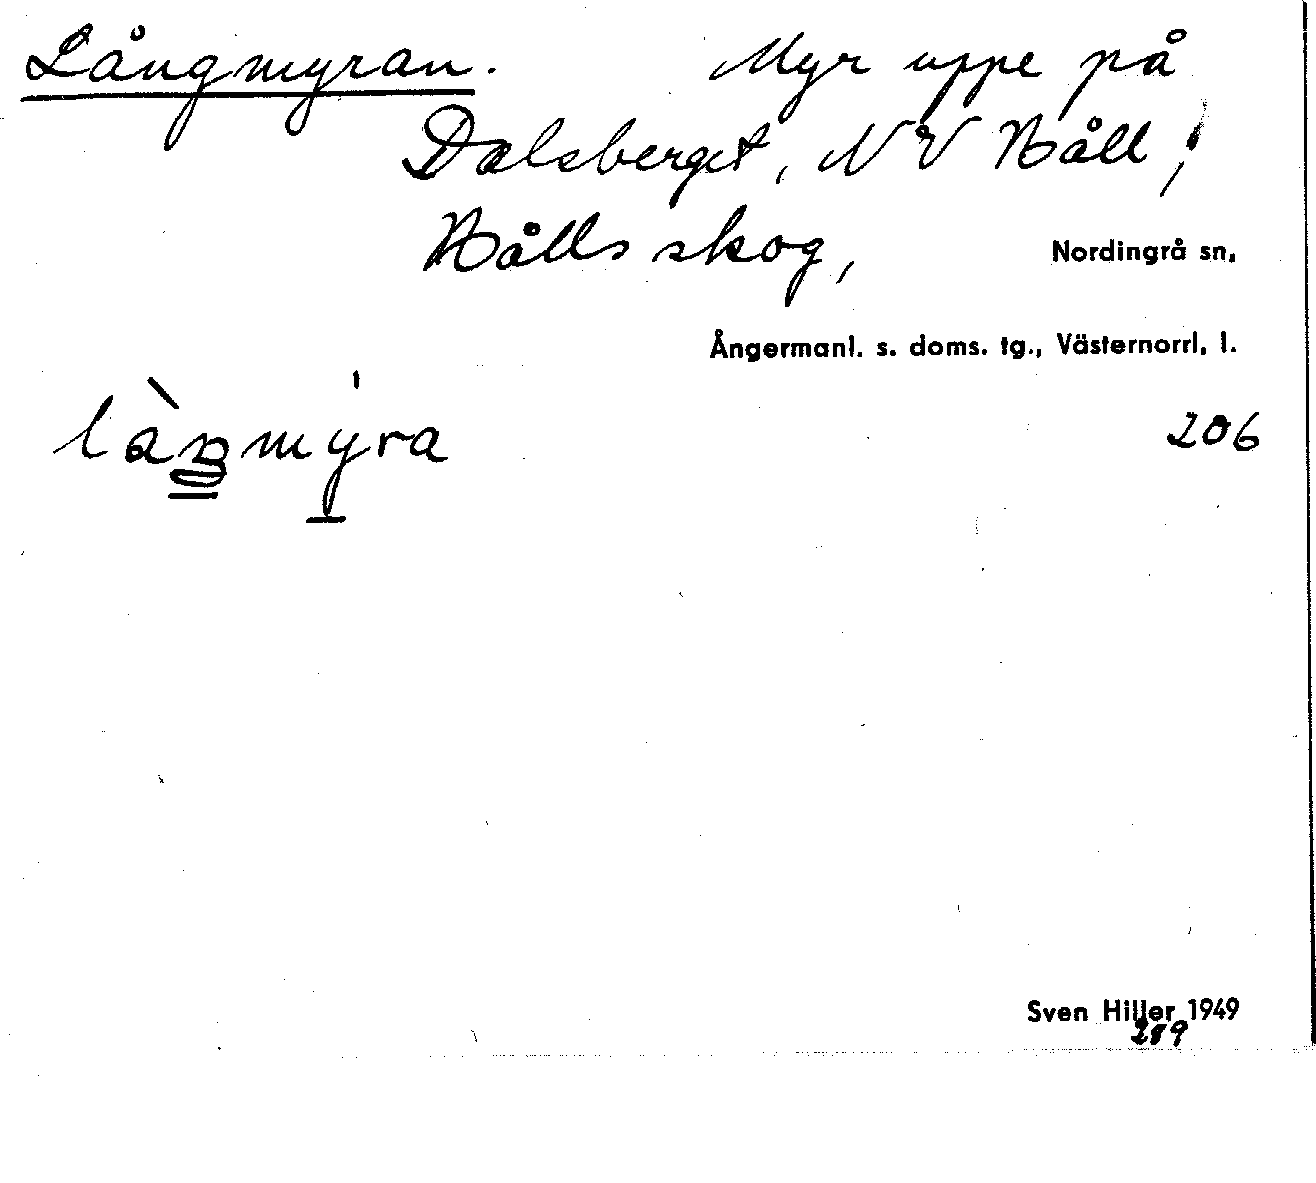 Långmyran. Myr uppe på
Dalsberget, NV Båll,
Bålls skog,
Nordingrå sn,
Ångermanl. s. doms. tg., Västernorrl. l.
206
Sven Hiller 1949
289